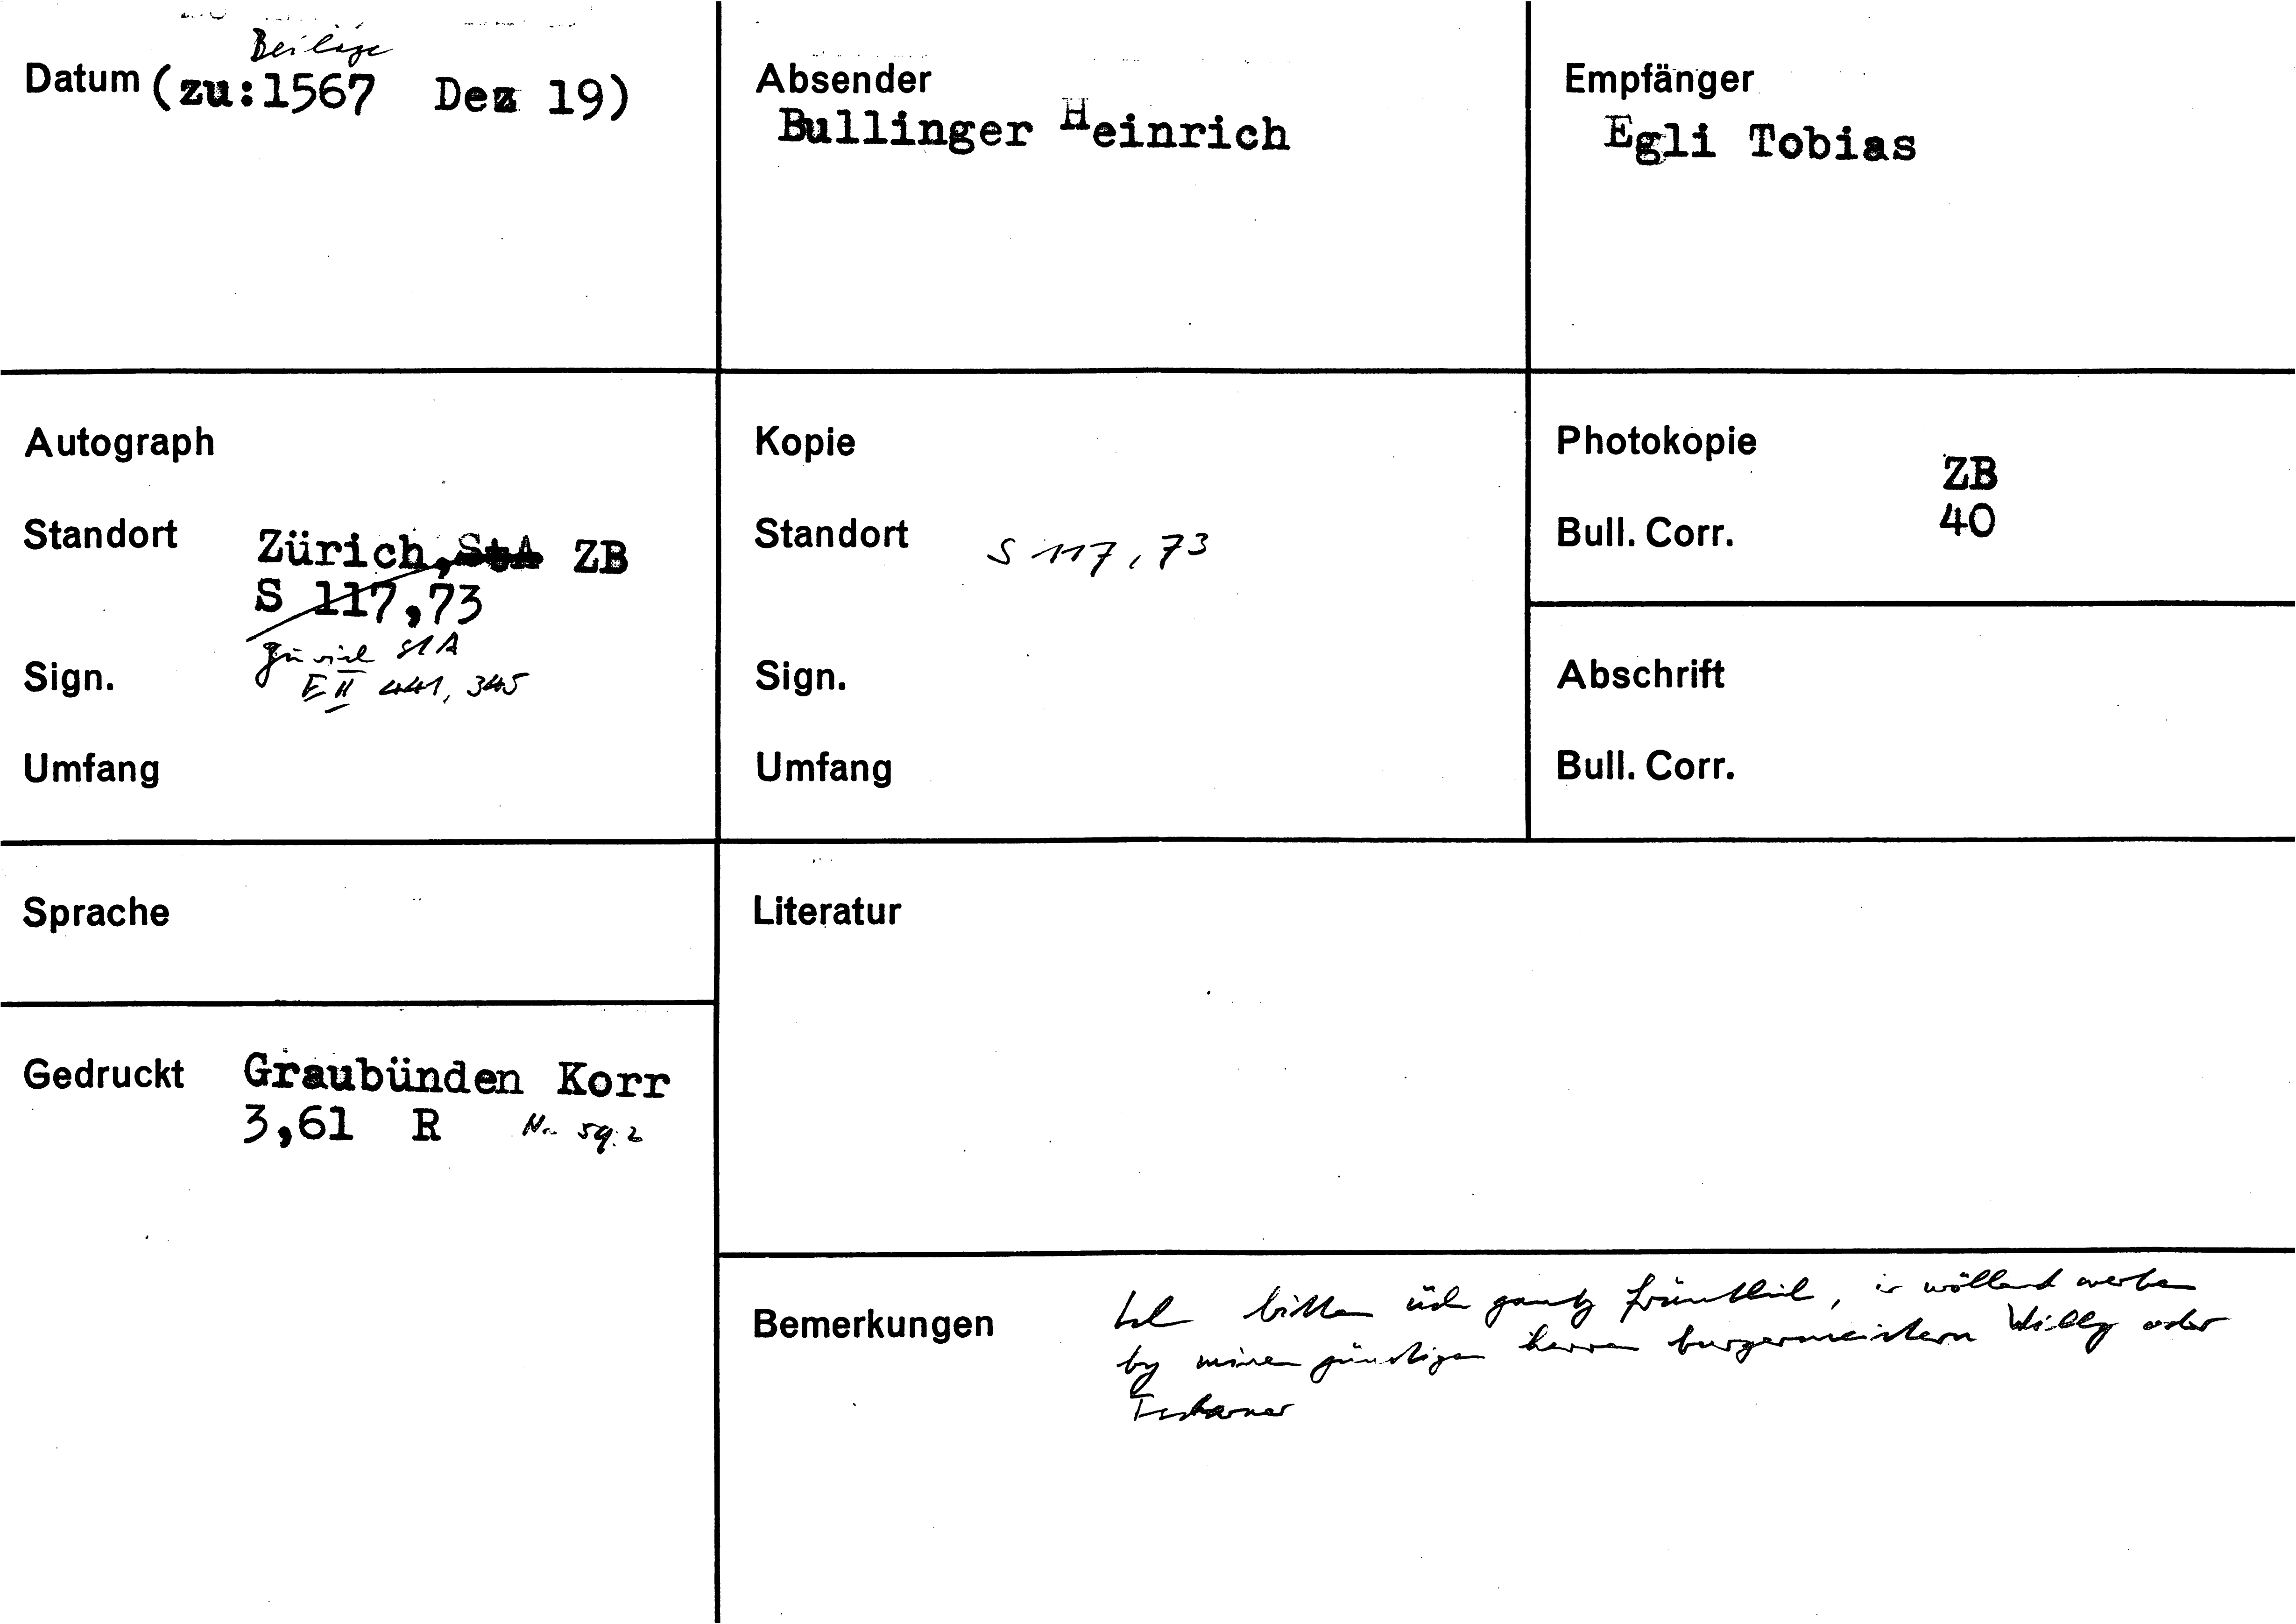 Beilage
Datum (zu: 1567 Dez 19)
Absender
Bullinger Heinrich
Empfänger
Egli Tobias
Autograph
Standort Zürich, StA ZB
S 117,73
StA
Sign. E II 441, 345
Umfang
Kopie
Standort S 117, 73
Sign.
Umfang
Photokopie ZB
Bull. Corr. 40
Abschrift
Bull. Corr.
Sprache
Gedruckt Graubünden Korr
3,61 R No 59.2
Literatur
Bemerkungen Ich bitten üch gantz früntlich, ir wöllend werben
by minen günstigen herren burgermeistern Willy oder
Tscharner